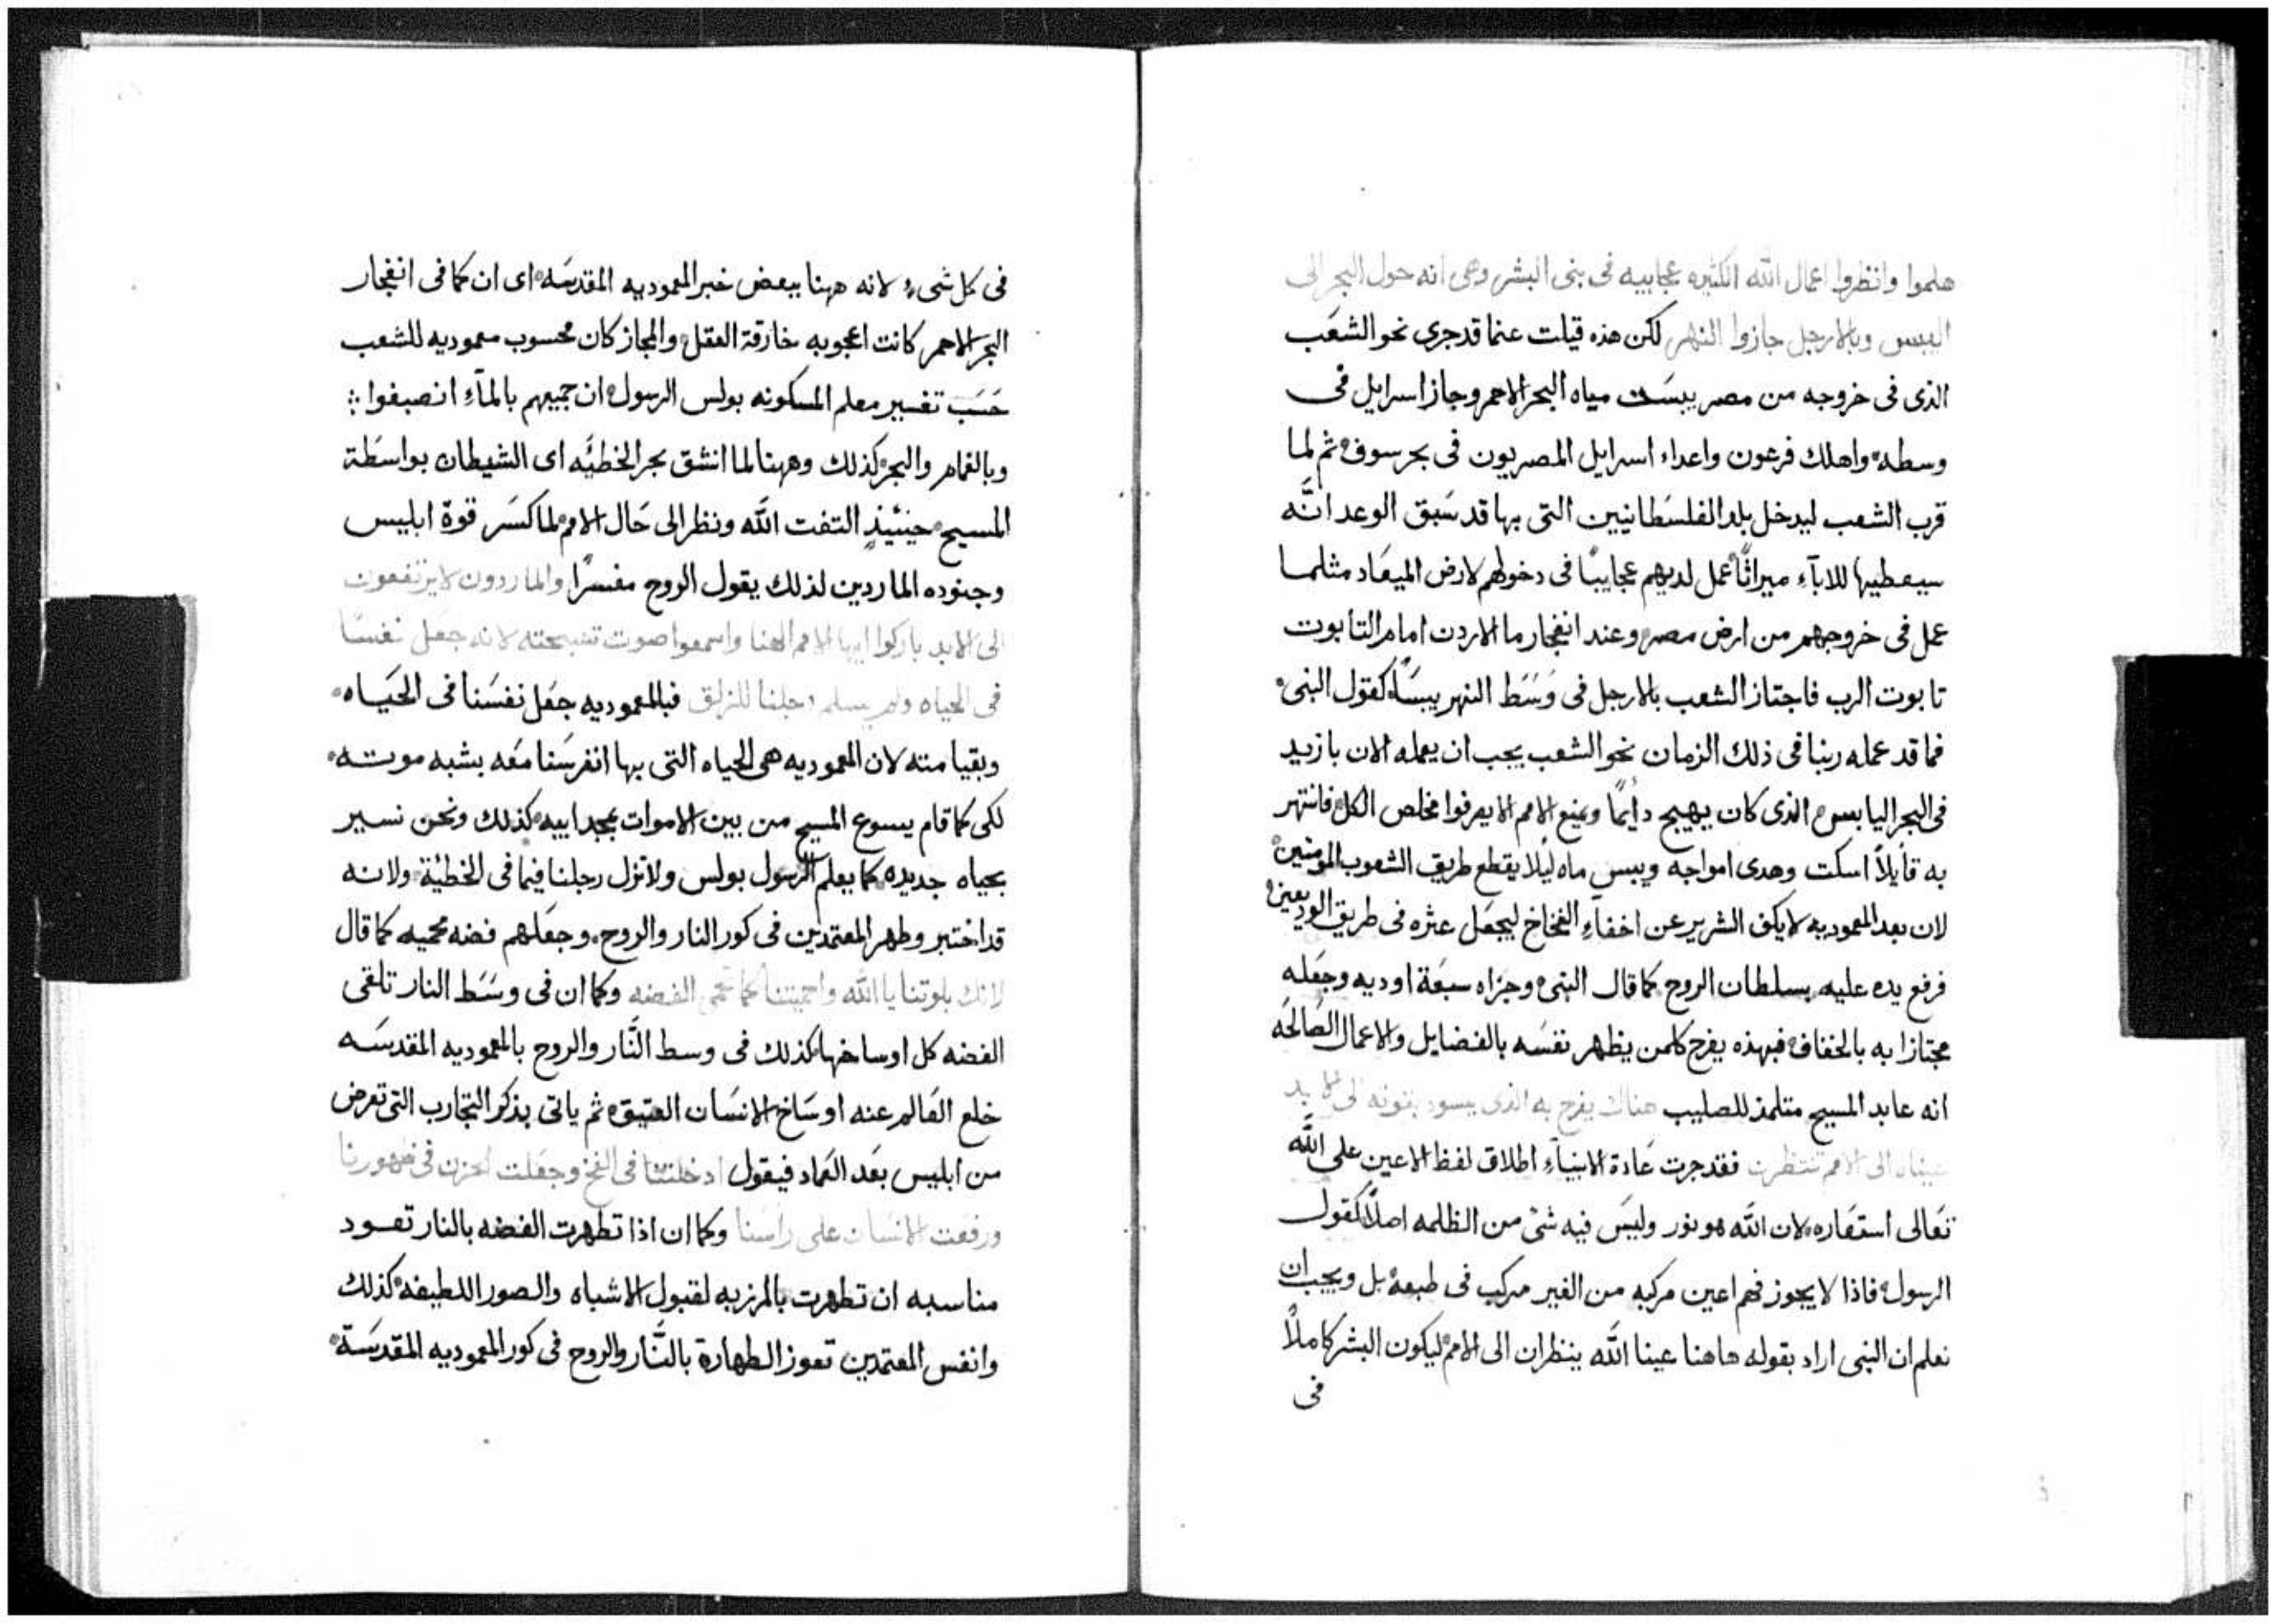 هلموا وانظروا اعمال الله الكثيره عجاييه فى بنى البشر وهى انه حول البحر الى
اليبس وبالارجل جازوا النهر لكن هذه قيلت عنما قد جرى نحو الشعَب
الذى فى خروجه من مصر يبسَت مياه البحر الاحمر وجاز اسرايل فى
وسطه واهلك فرعون واعداء اسرايل المصريون فى بحر سوف ثم لما
قرب الشعب ليدخل بلد الفلسَطانيين التى بها قد سَبق الوعد انَّه
سيعطيها للابآءِ ميراثًا عمل لديهم عجايبًا فى دخولهم لارض الميعَاد مثلما
عمل فى خروجهم من ارض مصر وعند انفجار ما الاردن امام التابوت
تابوت الرب فاجتاز الشعب بالارجل فى وَسَط النهر يبسَاً كقول النبى
فما قد عمله ربنا فى ذلك الزمان نحو الشعب يجب ان يعمله الان بازيد
فى البحر اليابس الذى كان يهيج دأيمًا ويمنع الامم الا يعرفوا مخلص الكل فانتهر
به قأيلاً اسكت وهدى امواجه ويبس ماه ليلا يقطع طريق الشعوب المومنين
لان بعد المعموديه لا يكف الشرير عن اخفاءِ الفخاخ ليجعَل عثره فى طريق الوديعين
فرفع يده عليه بسلطان الروح كما قال النبى وجزاه سبعَة اوديه وجعَله
مجتازا به بالخفاف فبهذه يفرح كلمن يظهر نفسَه بالفضايل والاعمال الصَالحَه
انه عابد المسيح متلمذ للصليب هناك يفرح به الذى يسود بقوته الى الابد
عيناه الى الامم تنتظرن فقد جرت عَادة الانبيآءِ اطلاق لفظ الاعين على الله
تعَالى استعَاره لان الله هو نور وليسَ فيه شىٌ من الظلمه اصلاً كقول
الرسول فاذا لا يجوز فهم اعين مركبه من الغير مركب فى طبعه بل ويجب ان
نعلم ان النبى اراد بقوله هاهنا عينا الله ينظران الى الامم ليكون البشر كاملاً
فى
فى كل شىءٍ لانه ههنا ببعض خبر المعموديه المقدسَه اى ان كما فى انفجار
البحر الاحمر كانت اعجوبه خارقة العقل والمجاز كان محسوب معموديه للشعب
حَسَب تفسير معلم المسكونه بولس الرسول ان جميهم بالمآءِ انصبغوا
وبالغمام والبحر كذلك وههنا لما انشق بحر الخطيَّه اى الشيطان بواسَطة
المسيح حينيئذٍ التفت الله ونظر الى حَال الامم لما كسَر قوة ابليس
وجنوده الماردين لذلك يقول الروح مفسرًا والماردون لا يرتفعون
الى الابد باركوا ايها الامم الهنا واسمعوا صوت تسبحته لانه جعَل نفسَنا
فى الحياه ولم يسلم ارجلنا للزلق فبالمعموديه جعَل نفسَنا فى الحَيَاه
وبقيا منته لان المعموديه هى الحياه التى بها انغرسَنا معَه بشبه موته
لكى كما قام يسوع المسيح من بين الاموات بمجد ابيه كذلك ونحن نسير
بحياه جديده كما يعلم الرسول بولس ولا تزل رجلنا فيما فى الخطئية ولانه
قد اختبر وطهر المعتمدين فى كور النار والروح وجعَلهم فضه محميه كما قال
لانك بلوتنا يا الله واحميتنا كما تحمى الفضه وكما ان فى وسَط النار تلقى
الفضه كل اوساخها كذلك فى وسط النَّار والروح بالمعموديه المقدسَه
خلع العَالم عنه اوسَاخ الانسَان العتيق ثم ياتى بذكر التجارب التى تعرض
من ابليس بعَد العَماد فيقول ادخلتنا فى الفخ وجعَلت الحزن فى ظهورنا
ورفعت الانسَان على راسَنا وكما ان اذا تطهرت الفضه بالنار تعود
مناسبه ان تطهرت بالمرزبه لقبول الاشباه والصور اللطيفه كذلك
وانفس المعتمدين تعوز الطهارة بالنَّار والروح فى كور المعموديه المقدسَة